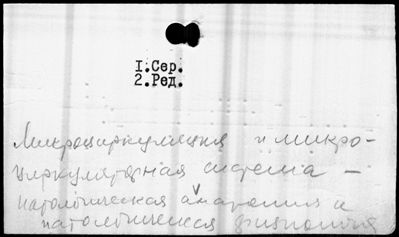 1.Сер.
2.Ред.
Микроциркуляция и микро-
циркуляторная система —
патологическая анатомия и
патологическая физиология